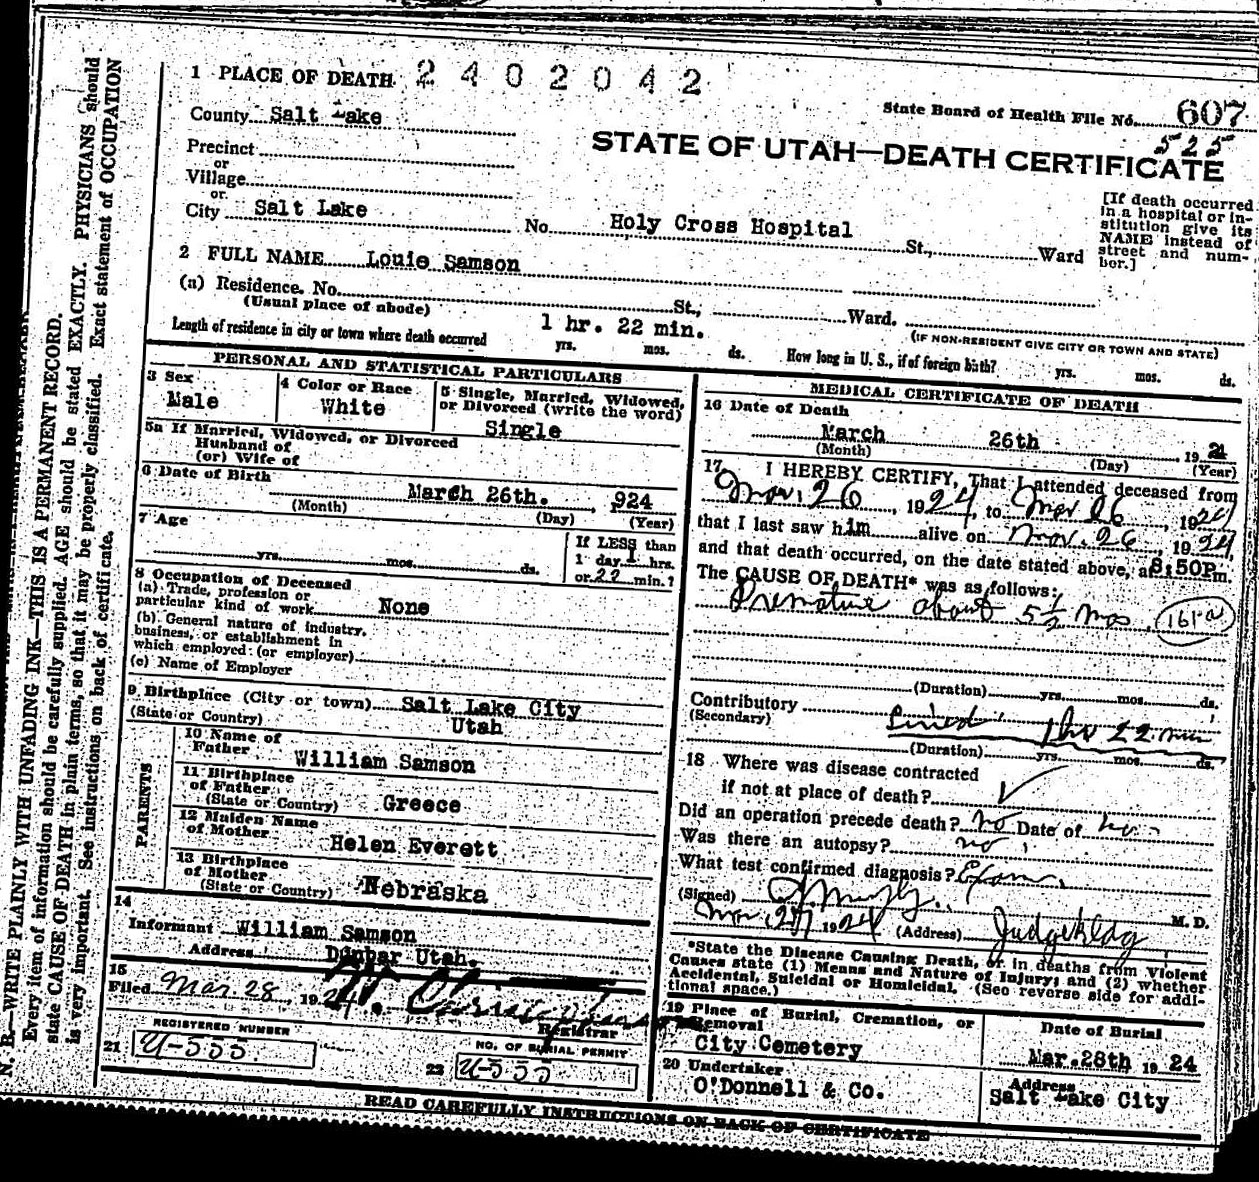 1 PLACE OF DEATH 2402042
State Board of Health File No. 607
525
County Salt Lake
STATE OF UTAH—DEATH CERTIFICATE
Precinct
or
Village
or
City Salt Lake No. Holy Cross Hospital St., Ward
[If death occurred in a hospital or institution give its NAME instead of street and number.]
2 FULL NAME Louie Samson
(a) Residence. No. St., Ward.
(Usual place of abode) (IF NON-RESIDENT GIVE CITY OR TOWN AND STATE)
Length of residence in city or town where death occurred 1 hr. 22 min. yrs. mos. ds. How long in U. S., if of foreign birth? yrs. mos. ds.
PERSONAL AND STATISTICAL PARTICULARS
3 Sex
Male
4 Color or Race
White
5 Single, Married, Widowed, or Divorced (write the word)
Single
5a If Married, Widowed, or Divorced
Husband of
(or) Wife of
6 Date of Birth
March 26th. , 924
(Month) (Day) (Year)
7 Age
yrs. mos. ds.
If LESS than
1 day 1 hrs.
or 22 min.?
8 Occupation of Deceased
(a) Trade, profession or
particular kind of work None
(b) General nature of industry,
business, or establishment in
which employed (or employer)
(c) Name of Employer
9 Birthplace (City or town) Salt Lake City
(State or Country) Utah
PARENTS
10 Name of
Father William Samson
11 Birthplace
of Father
(State or Country) Greece
12 Maiden Name
of Mother Helen Everett
13 Birthplace
of Mother
(State or Country) Nebraska
14
Informant William Samson
Address Dunbar Utah.
15
Filed Mar 28 1924
Registrar
REGISTERED NUMBER
21 U-555
NO. OF BURIAL PERMIT
22 U-555
MEDICAL CERTIFICATE OF DEATH
16 Date of Death
March 26th 1924
(Month) (Day) (Year)
17 I HEREBY CERTIFY, That I attended deceased from
Mar. 26, 1924, to Mar 26, 1924
that I last saw him alive on Mar. 26, 1924
and that death occurred, on the date stated above, at 8:50P m.
The CAUSE OF DEATH* was as follows:
Premature about 5 1/2 mos. 161a
(Duration) yrs. mos. ds.
Contributory
(Secondary) Lived 1 hr 22 min
(Duration) yrs. mos. ds.
18 Where was disease contracted
if not at place of death?
Did an operation precede death? no Date of no
Was there an autopsy? no
What test confirmed diagnosis? Exam.
(Signed) M. D.
Mar. 27, 1924 (Address) Judge Bldg
*State the Disease Causing Death, or in deaths from Violent
Causes state (1) Means and Nature of Injury; and (2) whether
Accidental, Suicidal or Homicidal. (See reverse side for addi-
tional space.)
19 Place of Burial, Cremation, or
Removal
City Cemetery
Date of Burial
Mar. 28th 1924
20 Undertaker
O'Donnell & Co.
Address
Salt Lake City
READ CAREFULLY INSTRUCTIONS ON BACK OF CERTIFICATE
N. B.—WRITE PLAINLY WITH UNFADING INK—THIS IS A PERMANENT RECORD.
Every item of information should be carefully supplied. AGE should be stated EXACTLY. PHYSICIANS should
state CAUSE OF DEATH in plain terms, so that it may be properly classified. Exact statement of OCCUPATION
is very important. See instructions on back of certificate.